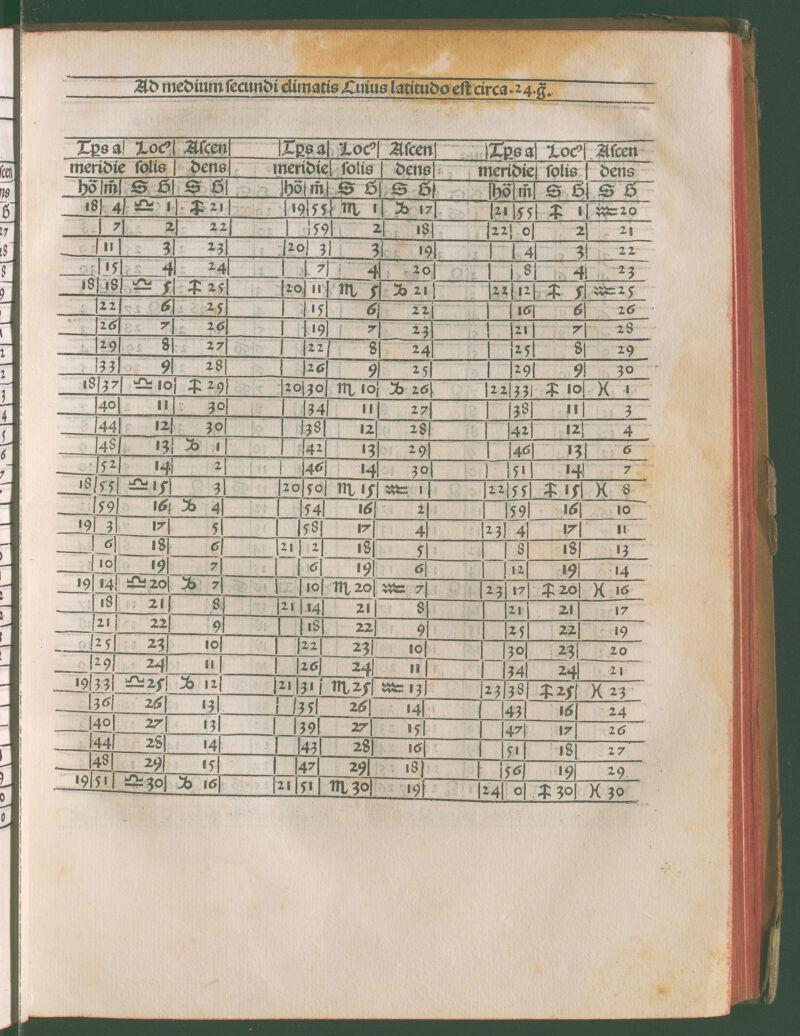 Ad medium secundi climatis Cuius latitudo est circa.24.g̃.
Tp̱s a Locꝰ Ascen Tp̱s a Locꝰ Ascen Tp̱s a Locꝰ Ascen
meridie solis dens meridie solis dens meridie solis dens
hõ m̃ S G̃ S G̃ hõ m̃ S G̃ S G̃ hõ m̃ S G̃ S G̃
18 4 ♎ 1 ♐ 21 19 55 ♏ 1 ♑ 17 21 55 ♐ 1 ♒ 20
7 2 22 59 2 18 22 0 2 21
11 3 23 20 3 3 19 4 3 22
15 4 24 7 4 20 8 4 23
18 18 ♎ 5 ♐ 25 20 11 ♏ 5 ♑ 21 22 12 ♐ 5 ♒ 25
22 6 25 15 6 22 16 6 26
26 7 26 19 7 23 21 7 28
29 8 27 22 8 24 25 8 29
33 9 28 26 9 25 29 9 30
18 37 ♎ 10 ♐ 29 20 30 ♏ 10 ♑ 26 22 33 ♐ 10 ♓ 1
40 11 30 34 11 27 38 11 3
44 12 30 38 12 28 42 12 4
48 13 ♑ 1 42 13 29 46 13 6
52 14 2 46 14 30 51 14 7
18 55 ♎ 15 3 20 50 ♏ 15 ♒ 1 22 55 ♐ 15 ♓ 8
59 16 ♑ 4 54 16 2 59 16 10
19 3 17 5 58 17 4 23 4 17 11
6 18 6 21 2 18 5 8 18 13
10 19 7 6 19 6 12 19 14
19 14 ♎ 20 ♑ 7 10 ♏ 20 ♒ 7 23 17 ♐ 20 ♓ 16
18 21 8 21 14 21 8 21 21 17
21 22 9 18 22 9 25 22 19
25 23 10 22 23 10 30 23 20
29 24 11 26 24 11 34 24 21
19 33 ♎ 25 ♑ 12 21 31 ♏ 25 ♒ 13 23 38 ♐ 25 ♓ 23
36 26 13 35 26 14 43 16 24
40 27 13 39 27 15 47 17 26
44 28 14 43 28 16 51 18 27
48 29 15 47 29 18 56 19 29
19 51 ♎ 30 ♑ 16 21 51 ♏ 30 19 24 0 ♐ 30 ♓ 30